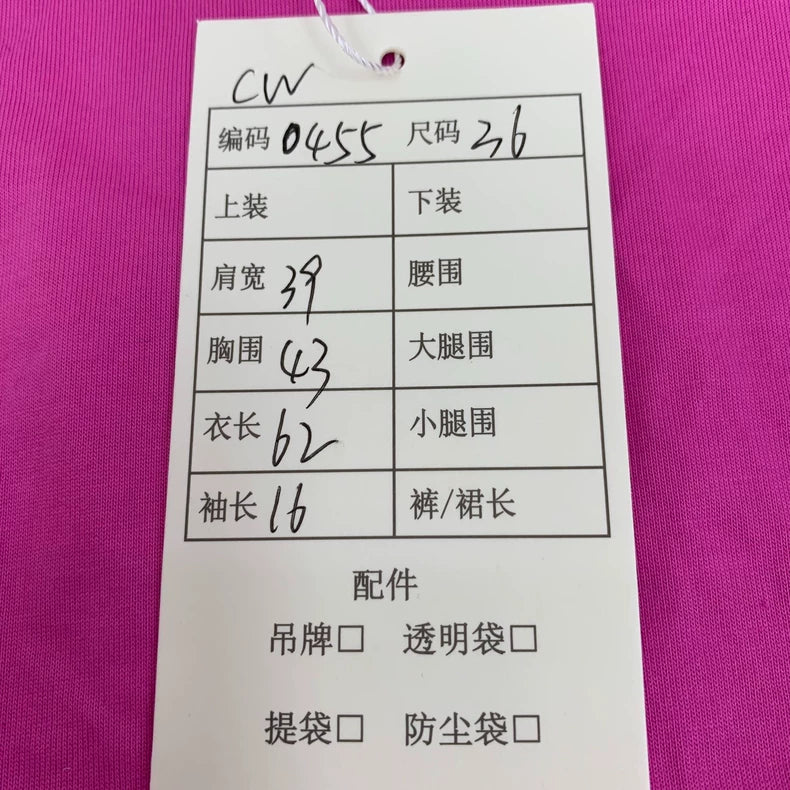 CW
编码 0455 尺码 36
上装 下装
肩宽 39 腰围
胸围 43 大腿围
衣长 62 小腿围
袖长 16 裤/裙长
配件
吊牌□ 透明袋□
提袋□ 防尘袋□